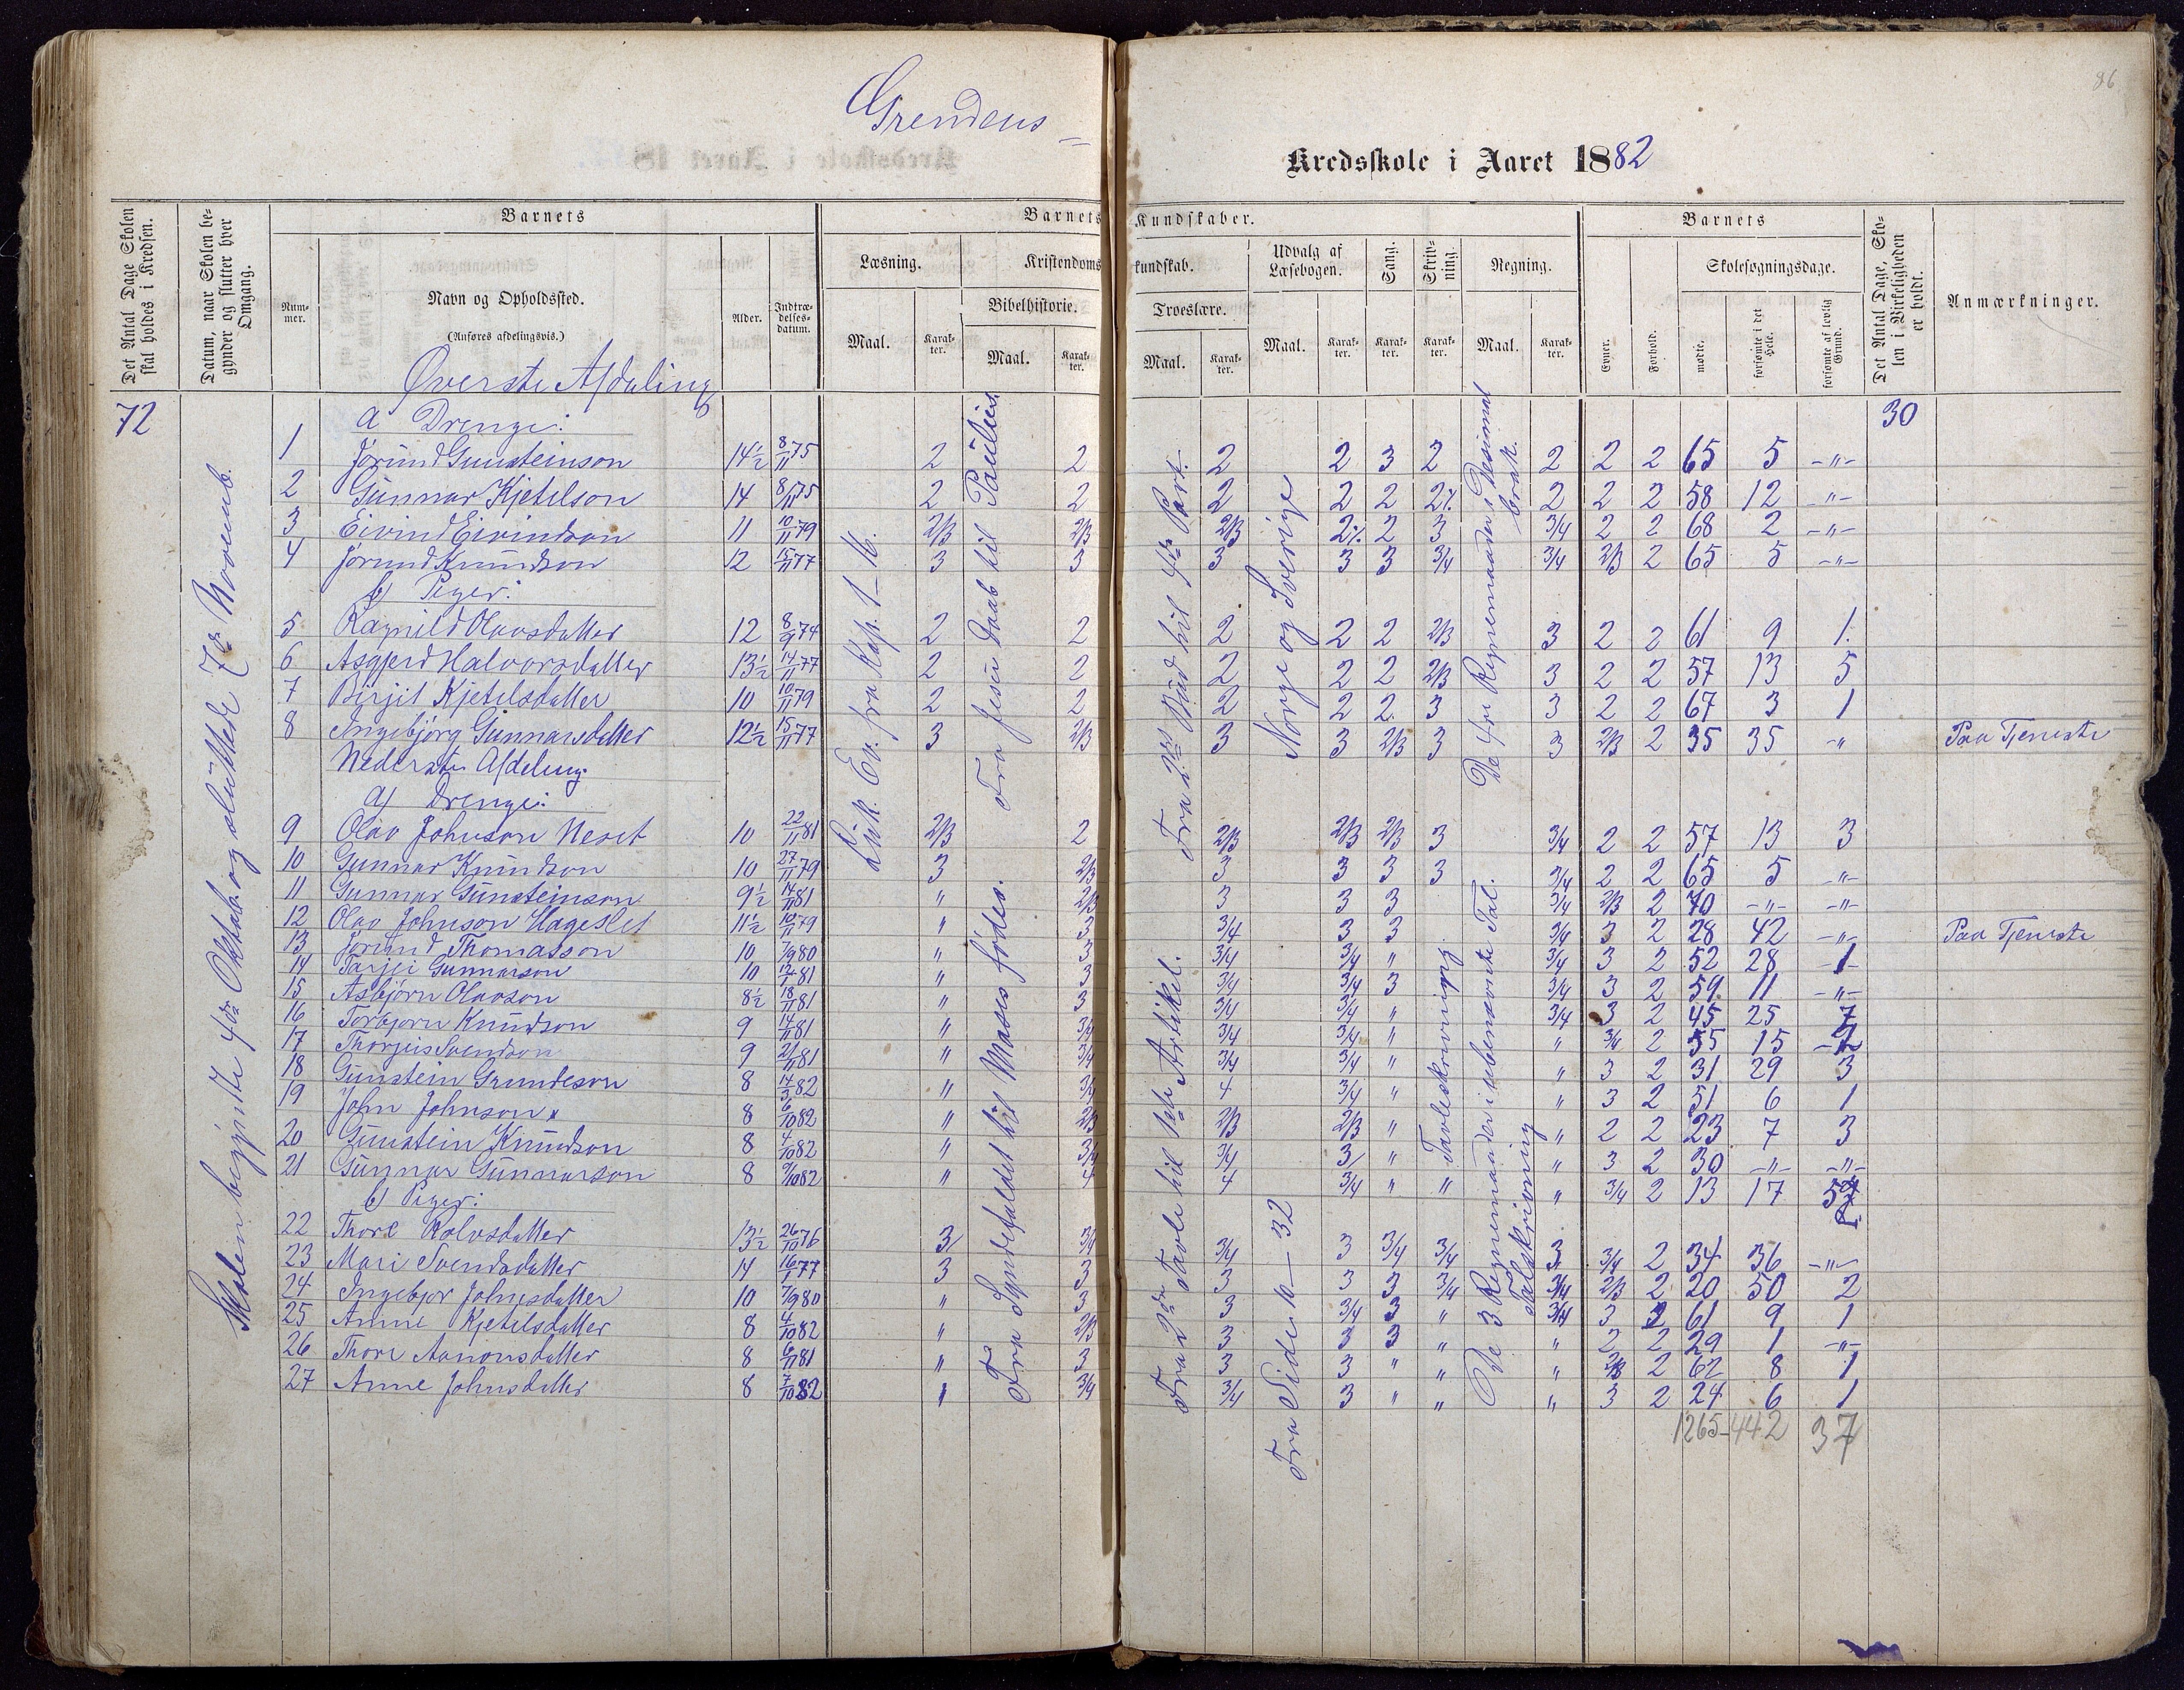 Grendens-
Kredsskole i Aaret 1882
86
Det Antal Dage Skolen skal holdes i Kredsen.
Datum, naar Skolen begynder og slutter hver Omgang.
Barnets
Nummer.
Navn og Opholdssted.
(Anføres afdelingsvis.)
Alder.
Indtrædelses-datum.
Barnets Kundskaber.
Læsning.
Kristendomskundskab.
Bibelhistorie.
Troeslære.
Udvalg af Læsebogen.
Sang.
Skrivning.
Regning.
Maal.
Karakter.
Maal.
Karakter.
Maal.
Karakter.
Maal.
Karakter.
Karakter.
Karakter.
Maal.
Karakter.
Barnets
Evner.
Forhold.
Skolesøgningsdage.
mødte.
forsømte i det Hele.
forsømte af lovlig Grund.
Det Antal Dage, Skolen i Virkeligheden er holdt.
Anmærkninger.
72
Skolen begynte 4de Oktob. og sluttede 7de Novemb.
Øverste Afdeling
a Drenge:
30
1 Jørund Gunsteinson 14½ 8/11 75 2 2 2 2 3 2 2 2 2 65 5 -"-
2 Gunnar Kjetilson 14 8/11 75 2 2 2 2 2 2% 2 2 2 58 12 -"-
3 Eivind Eivindson 11 10/11 79 2/3 2/3 2/3 2% 2 3 3/4 2 2 68 2 -"-
4 Jørund Knudson 12 15/11 77 3 3 3 3 3 3/4 3/4 2/3 2 65 5 -"-
b) Piger:
5 Ragnild Olavsdatter 12 8/9 74 2 2 2 2 2 2/3 3 2 2 61 9 1
6 Asgjerd Halvorsdatter 13½ 14/11 77 2 2 2 2 2 2/3 3 2 2 57 13 5
7 Birjit Kjetilsdatter 10 10/11 79 2 2 2 2 2 3 3 2 2 67 3 1
8 Ingebjørg Gunnarsdatter 12½ 15/11 77 3 2/3 3 3 2/3 3 3 2/3 2 35 35 " Paa Tjeneste
Nederste Afdeling
a) Drenge:
9 Olav Johnson Neset 10 22/11 81 2/3 2 2/3 2/3 2/3 3 3/4 2 2 57 13 3
10 Gunnar Knudson 10 27/11 79 3 2/3 3 3 3 3 3/4 2 2 65 5 -"-
11 Gunnar Gunsteinson 9½ 14/11 81 " 2/3 3 3 3 3/4 2/3 2 70 -"- -"-
12 Olav Johnson Hageslet 11½ 10/11 79 " 3 3/4 3 3 3/4 3 2 28 42 -"- Paa Tjeneste
13 Jørund Thomasson 10 7/9 80 " 3 3/4 3/4 " 3/4 3 2 52 28 1
14 Tarjei Gunnarson 10 12/1 81 " 3 3/4 3/4 3 3/4 3 2 59 11 -"-
15 Asbjørn Olavson 8½ 18/11 81 " 3 3/4 3/4 " 3/4 3 2 45 25 7
16 Torbjørn Knudson 9 14/11 81 " 3/4 3/4 3/4 " " 3/4 2 55 15 2
17 Thorjus Svendson 9 21/11 81 " 3/4 3/4 3/4 " " 3 2 31 29 3
18 Gunstein Grundeson 8 14/3 82 " 3/4 4 3/4 " " 3 2 51 6 1
19 John Johnson x 8 6/10 82 " 2/3 2/3 2/3 " " 2 2 23 7 3
20 Gunstein Knudson 8 4/10 82 " 3/4 3/4 3/ " " 3 2 30 -"- -"-
21 Gunnar Gunnarson 8 9/10 82 " 4 4 3/4 " " " 3/4 2 13 17 5
b) Piger:
22 Thore Halvsdatter 13½ 26/10 76 3 3/4 3/4 3 3/4 3/4 3 3/4 2 34 36 -"-
23 Mari Svendsdatter 14 16/1 77 3 3 3 3 3 3/4 3/4 2/3 2 20 50 2
24 Ingebjor Johnsdatter 10 7/9 80 " 3 3 3/4 3 " 3/4 3 2 61 9 1
25 Anne Kjetilsdatter 8 4/10 82 " 2/3 3 3 3 " " 2 2 29 1 -"-
26 Thore Aanonsdatter 8 6/11 81 " 3 3 3 " " " 2/3 2 62 8 1
27 Anne Johnsdatter 8 7/10 82 " 3/4 3/4 3 " " " 3 2 24 6 1
1265-442 37
Luk. Ev. fra Kap. 1-16.
Fra Jesu Daab til Paulus
Fra Syndefaldet til Moses fødes.
Fra 2det Bud til 4de Part.
Fra 2den Tavle til 1ste Artikel.
Norge og Sverige
Fra Siden 10-32
Tavleskrivning
De 4re Regnemaader i Desimalbrøk.
De 3 Regnemaader i ubenævnte Tal.
Talskrivning